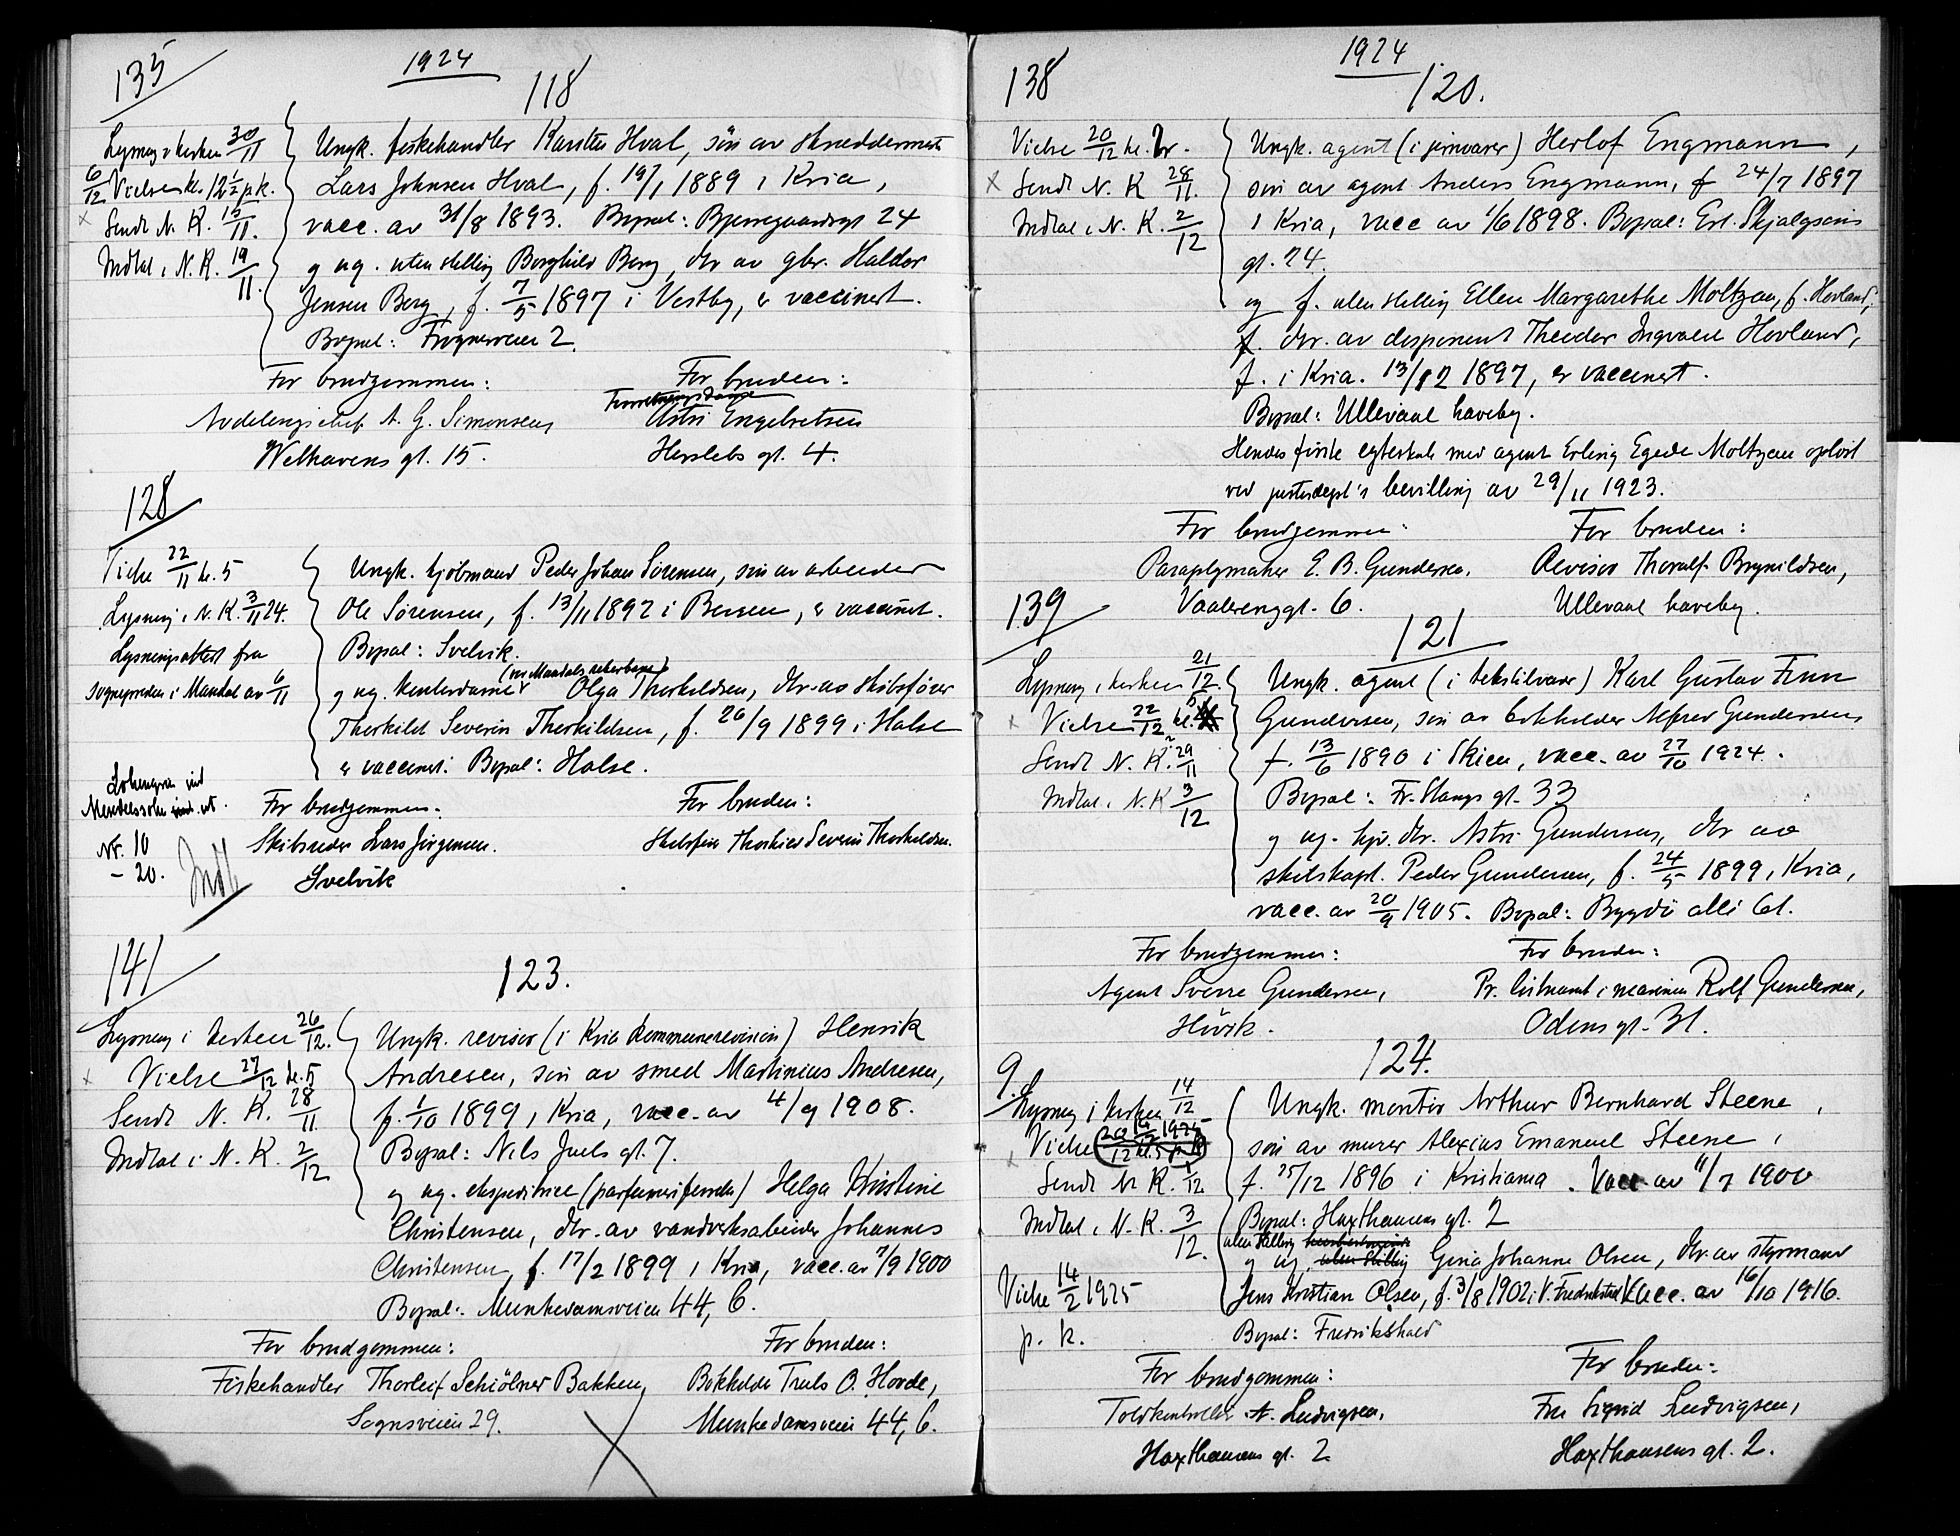 1924
135
118
Lysning i kirken 30/11
6/12 Vielse kl. 12 1/2 p.k.
Sendt N. K. 15/11.
Indtal i N. K. 19/11.
Ungk. fiskehandler Karsten Hval, søn av skreddermester
Lars Johnsen Hval, f. 19/1 1889 i Kria,
vacc. av 31/8 1893. Bopæl: Bjerregaardsgt 24
og ug. uten stilling Borghild Berg, dtr av gbr. Haldor
Jensen Berg, f. 7/5 1897 i Vestby, er vaccinert.
Bopæl: Frognerveien 2.
For brudgommen: For bruden:
Avdelingschef A. G. Simonsen, Astri Engebretsen
Welhavens gt. 15. Herslebs gt. 4.
128
Vielse 22/11 kl. 5
Lysning i N. K. 3/11 24.
Lysningsattest fra
sognepresten i Mandal av 6/11
Ungk. kjøbmand Peder Johan Sørensen, søn av arbeider
Ole Sørensen, f. 13/11 1892 i Bergen, er vaccinert.
Bopæl: Svelvik.
og ug. kontordame Olga Thorkildsen, dtr. av skibsfører
Thorkild Severin Thorkildsen, f. 26/9 1899 i Halse
er vaccinert. Bopæl: Halse.
Lohengrin ind
Mendelssohn ut.
Nr. 10
– 20.
Indb
For brudgommen: For bruden:
Skibsreder Lars Jørgensen. Skibsfører Thorkild Severin Thorkildsen.
Svelvik
141
123.
Lysning i kirken 26/12.
Vielse 27/12 kl. 5
Sendt N. K. 28/11
Indtal i N. K. 2/12
Ungk. revisor (i Kria kommunerevision) Henrik
Andresen, søn av smed Martinius Andresen,
f. 1/10 1899 i Kria, vacc. av 4/9 1908.
Bopæl: Nils Juels gt. 7.
og ug. ekspeditrice (parfumeriforretn) Helga Kristine
Christensen, dtr. av vandverksarbeider Johannes
Christensen, f. 17/2 1899 i Kria, vacc. av 7/9 1900
Bopæl: Munkedamsveien 44, b.
For brudgommen: For bruden:
Fiskehandler Thorleif Schiölner Bakken, Bokholder Truls O. Hovde,
Sognsveien 29. Munkedamsveien 44, b.
1924
138
120.
Vielse 20/12 kl. 2 br.
Sendt N. K. 28/11.
Indtal i N. K. 2/12
Ungk. agent (i jernvarer) Herlof Engmann,
søn av agent Anders Engmann, f 24/7 1897
i Kria, vacc av 1/6 1898. Bopæl: Erl. Skjalgsøns
gt. 24.
og f. uten stilling Ellen Margarethe Moltzau, f. Hovland,
dtr. av disponent Theodor Ingvald Hovland,
f. i Kria. 13/12 1897, er vaccinert.
Bopæl: Ullevaal haveby.
Hendes første egteskab med agent Erling Egede Moltzau opløst
ved justisdept's bevilling av 29/11 1923.
For brudgommen: For bruden:
Paraplymaker E. B. Gundersen, Revisor Thoralf Brynildsen,
Vaalerenggt. 6. Ullevaal haveby.
139
121
Lysning i kirken 21/12.
Vielse 22/12 kl. 5
Sendt N. K. 29/11
Indtal i N. K 3/12
Ungk. agent (i tekstilvarer) Karl Gustav Finn
Gundersen, søn av bokholder Alfred Gundersen,
f. 13/6 1890 i Skien, vacc. av 27/10 1924.
Bopæl: Fr. Stangs gt. 33
og ug. hjv. dtr. Astri Gundersen, dtr av
skibskapt. Peder Gundersen, f. 24/5 1899 i Kria,
vacc. av 20/9 1905. Bopæl: Bygdø allé 61.
For brudgommen: For bruden:
Agent Sverre Gundersen, Pr. løitnant i marinen Rolf Gundersen,
Høvik. Odins gt. 31.
9.
124.
Lysning i kirken 14/12
Vielse 20/12 kl. 5 p. k
14/2 1925
Sendt N K. 1/12
Indtal i N. K. 3/12.
Vielse 14/2 1925
p. k.
Ungk. montør Arthur Bernhard Steene,
søn av murer Alexius Emanuel Steene,
f. 25/12 1896 i Kristiania. Vacc av 11/7 1900
Bopæl: Haxthausens gt. 2
uten stilling
og ug. uten stilling Gina Johanne Olsen, dtr. av styrmand
Jens Kristian Olsen, f. 3/8 1902 i V. Fredrikstad, Vacc. av 16/10 1916.
Bopæl: Fredrikshald
For brudgommen: For bruden:
Toldkontrollør A. Ludvigsen, Fru Sigrid Ludvigsen,
Haxthausens gt. 2 Haxthausens gt. 2.